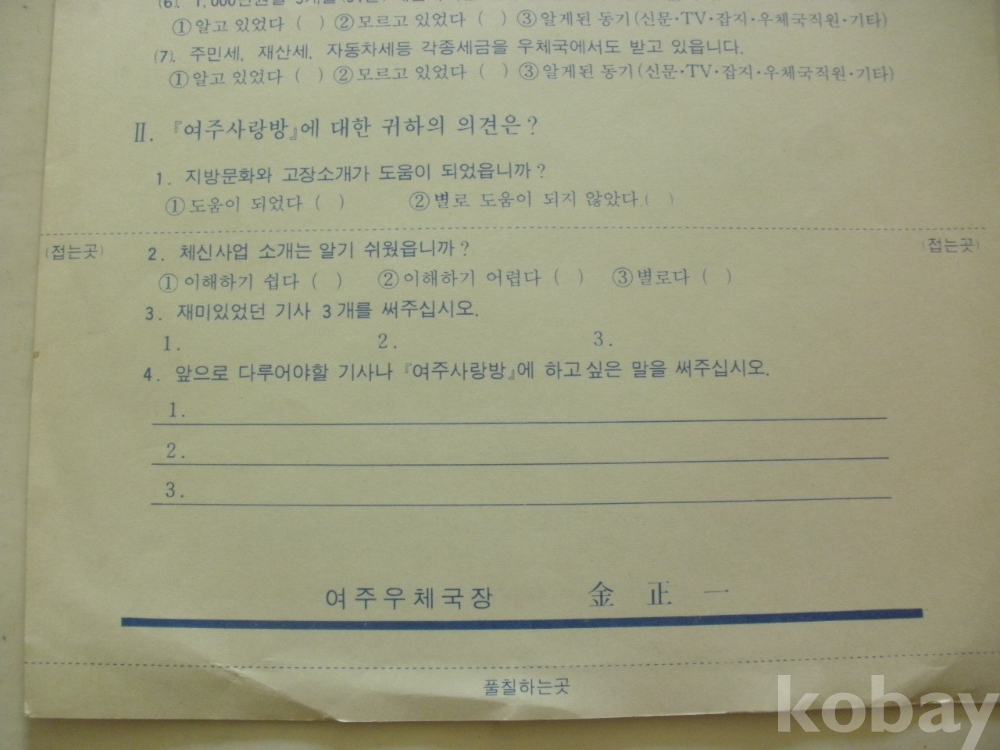 ①알고 있었다 ( ) ②모르고 있었다 ( ) ③알게된 동기(신문·TV·잡지·우체국직원·기타)
(7). 주민세, 재산세, 자동차세등 각종세금을 우체국에서도 받고 있읍니다.
①알고 있었다 ( ) ②모르고 있었다 ( ) ③알게된 동기(신문·TV·잡지·우체국직원·기타)
Ⅱ. 『여주사랑방』에 대한 귀하의 의견은?
1. 지방문화와 고장소개가 도움이 되었읍니까?
①도움이 되었다 ( ) ②별로 도움이 되지 않았다 ( )
(접는곳) (접는곳)
2. 체신사업 소개는 알기 쉬웠읍니까?
①이해하기 쉽다 ( ) ②이해하기 어렵다 ( ) ③별로다 ( )
3. 재미있었던 기사 3개를 써주십시오.
1. 2. 3.
4. 앞으로 다루어야할 기사나 『여주사랑방』에 하고싶은 말을 써주십시오.
1.
2.
3.
여주우체국장 金 正 一
풀칠하는곳
kobay